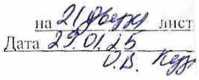 на 21 двух лист
Дата 29.01.25
О.В.